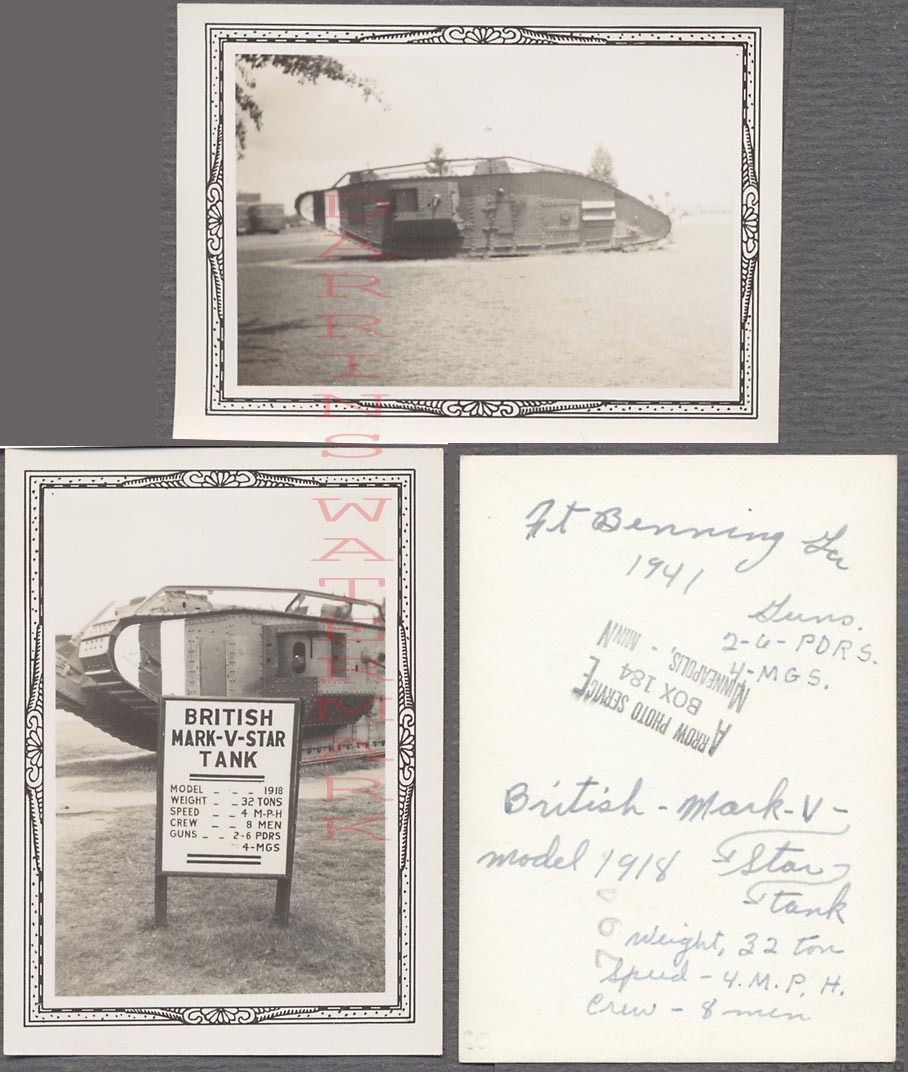 CARRINS WATERMARK
BRITISH
MARK-V-STAR
TANK
MODEL - - - 1918
WEIGHT - - 32 TONS
SPEED - - 4 M-P-H
CREW - - 8 MEN
GUNS - - 2-6 PDRS
4-MGS
Ft Benning Ga
1941
Guns.
2-6-PDRS.
4-MGS.
ARROW PHOTO SERVICE
BOX 184
MINNEAPOLIS, - MINN
British - Mark-V-
model 1918 Star
Tank
Weight, 32 ton
Speed - 4. M. P. H.
Crew - 8 men